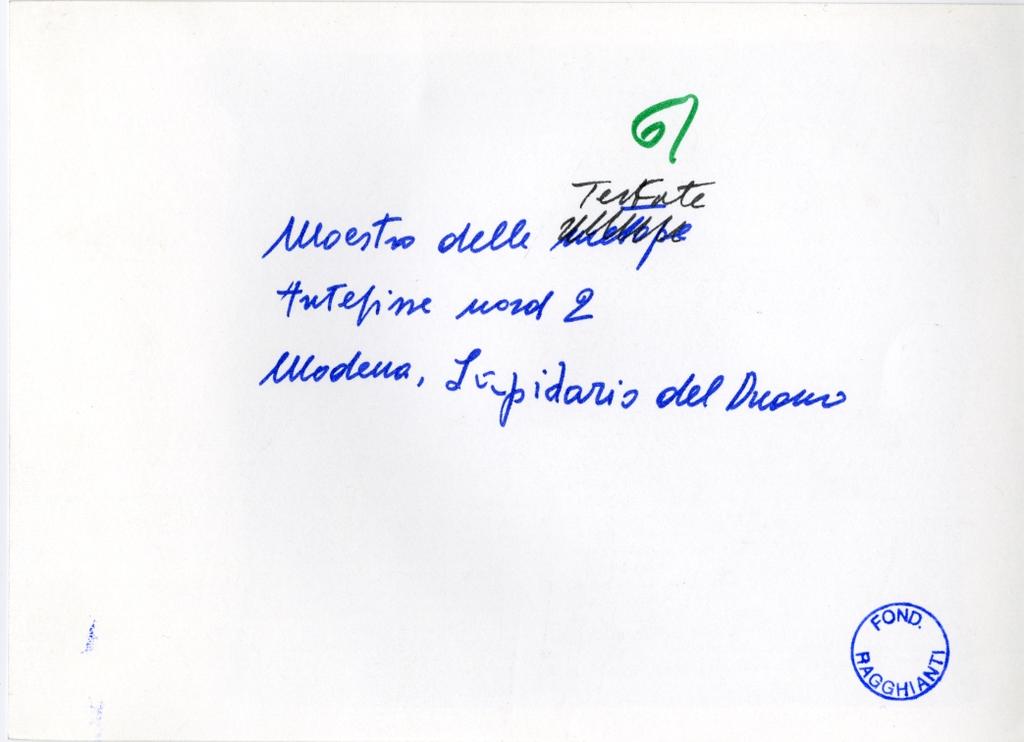 61
Testate
Maestro delle metope
Antefisse nord 2
Modena, Lapidario del Duomo
FOND.
RAGGHIANTI